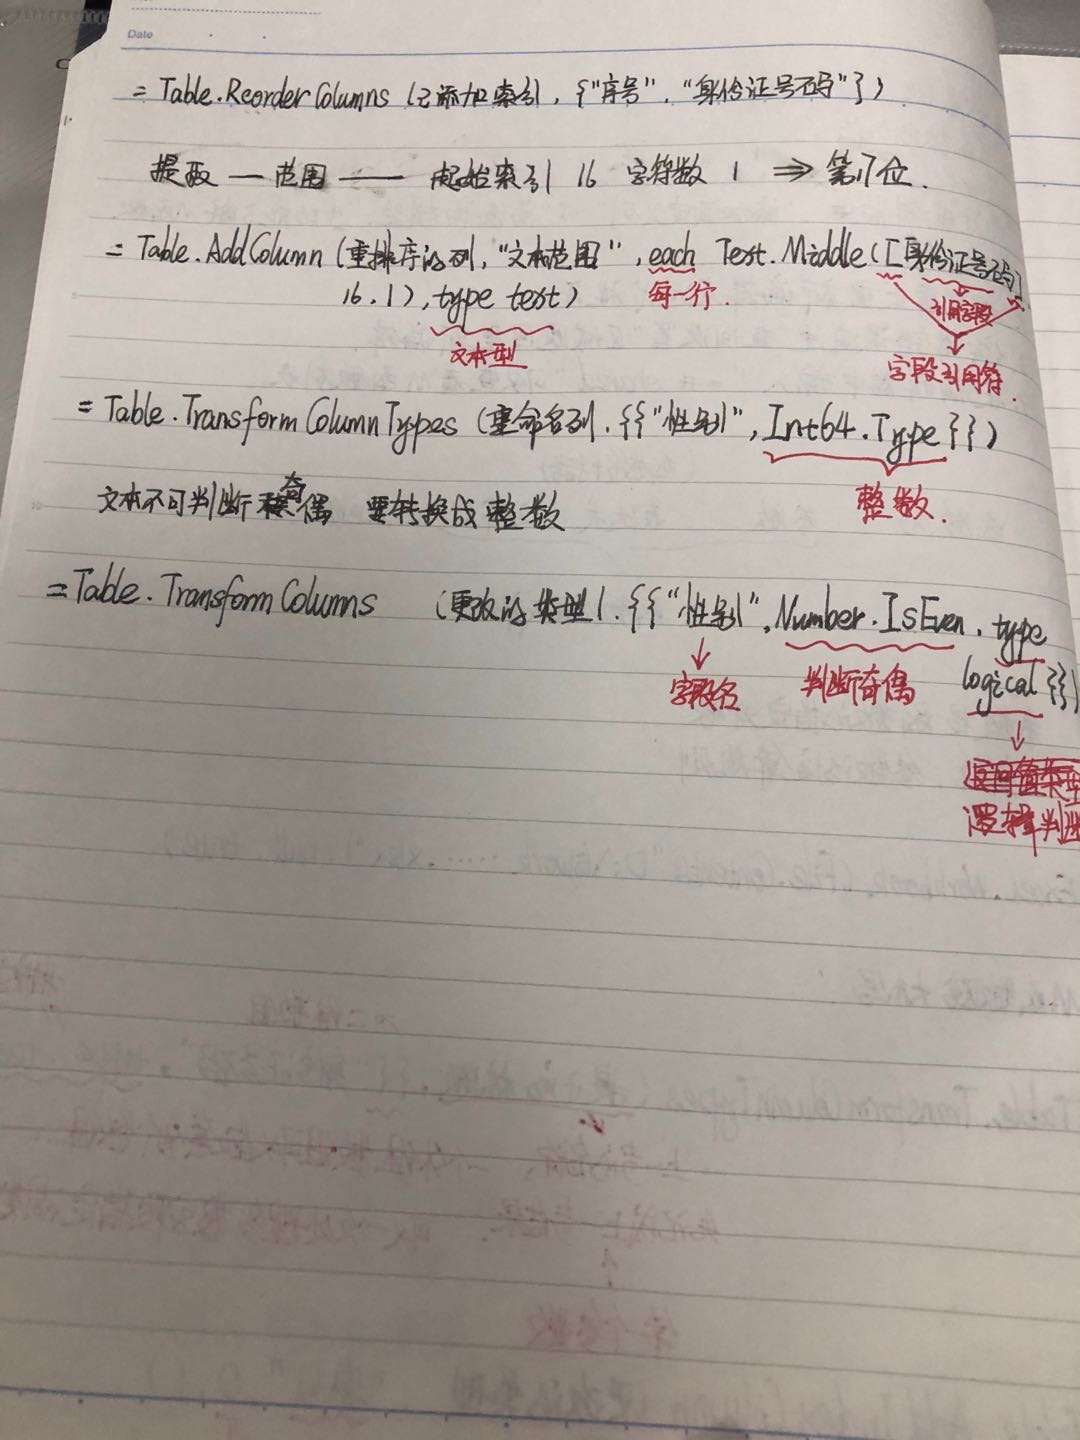 Date
= Table.ReorderColumns (已添加索引, {"序号", "身份证号码"})
提取 — 范围 —— 起始索引 16 字符数 1 ⇒ 第17位.
= Table.AddColumn (重排序的列, "文本范围", each Test.Middle([身份证号码]
16.1), type test)
每一行.
引用字段
文本型
字段引用符.
= Table.TransformColumnTypes (重命名列, {{"性别", Int64.Type}})
文本不可判断奇偶 要转换成整数
整数.
= Table.TransformColumns (更改的类型1, {{"性别", Number.IsEven, type
logical}})
字段名
判断奇偶
逻辑判断